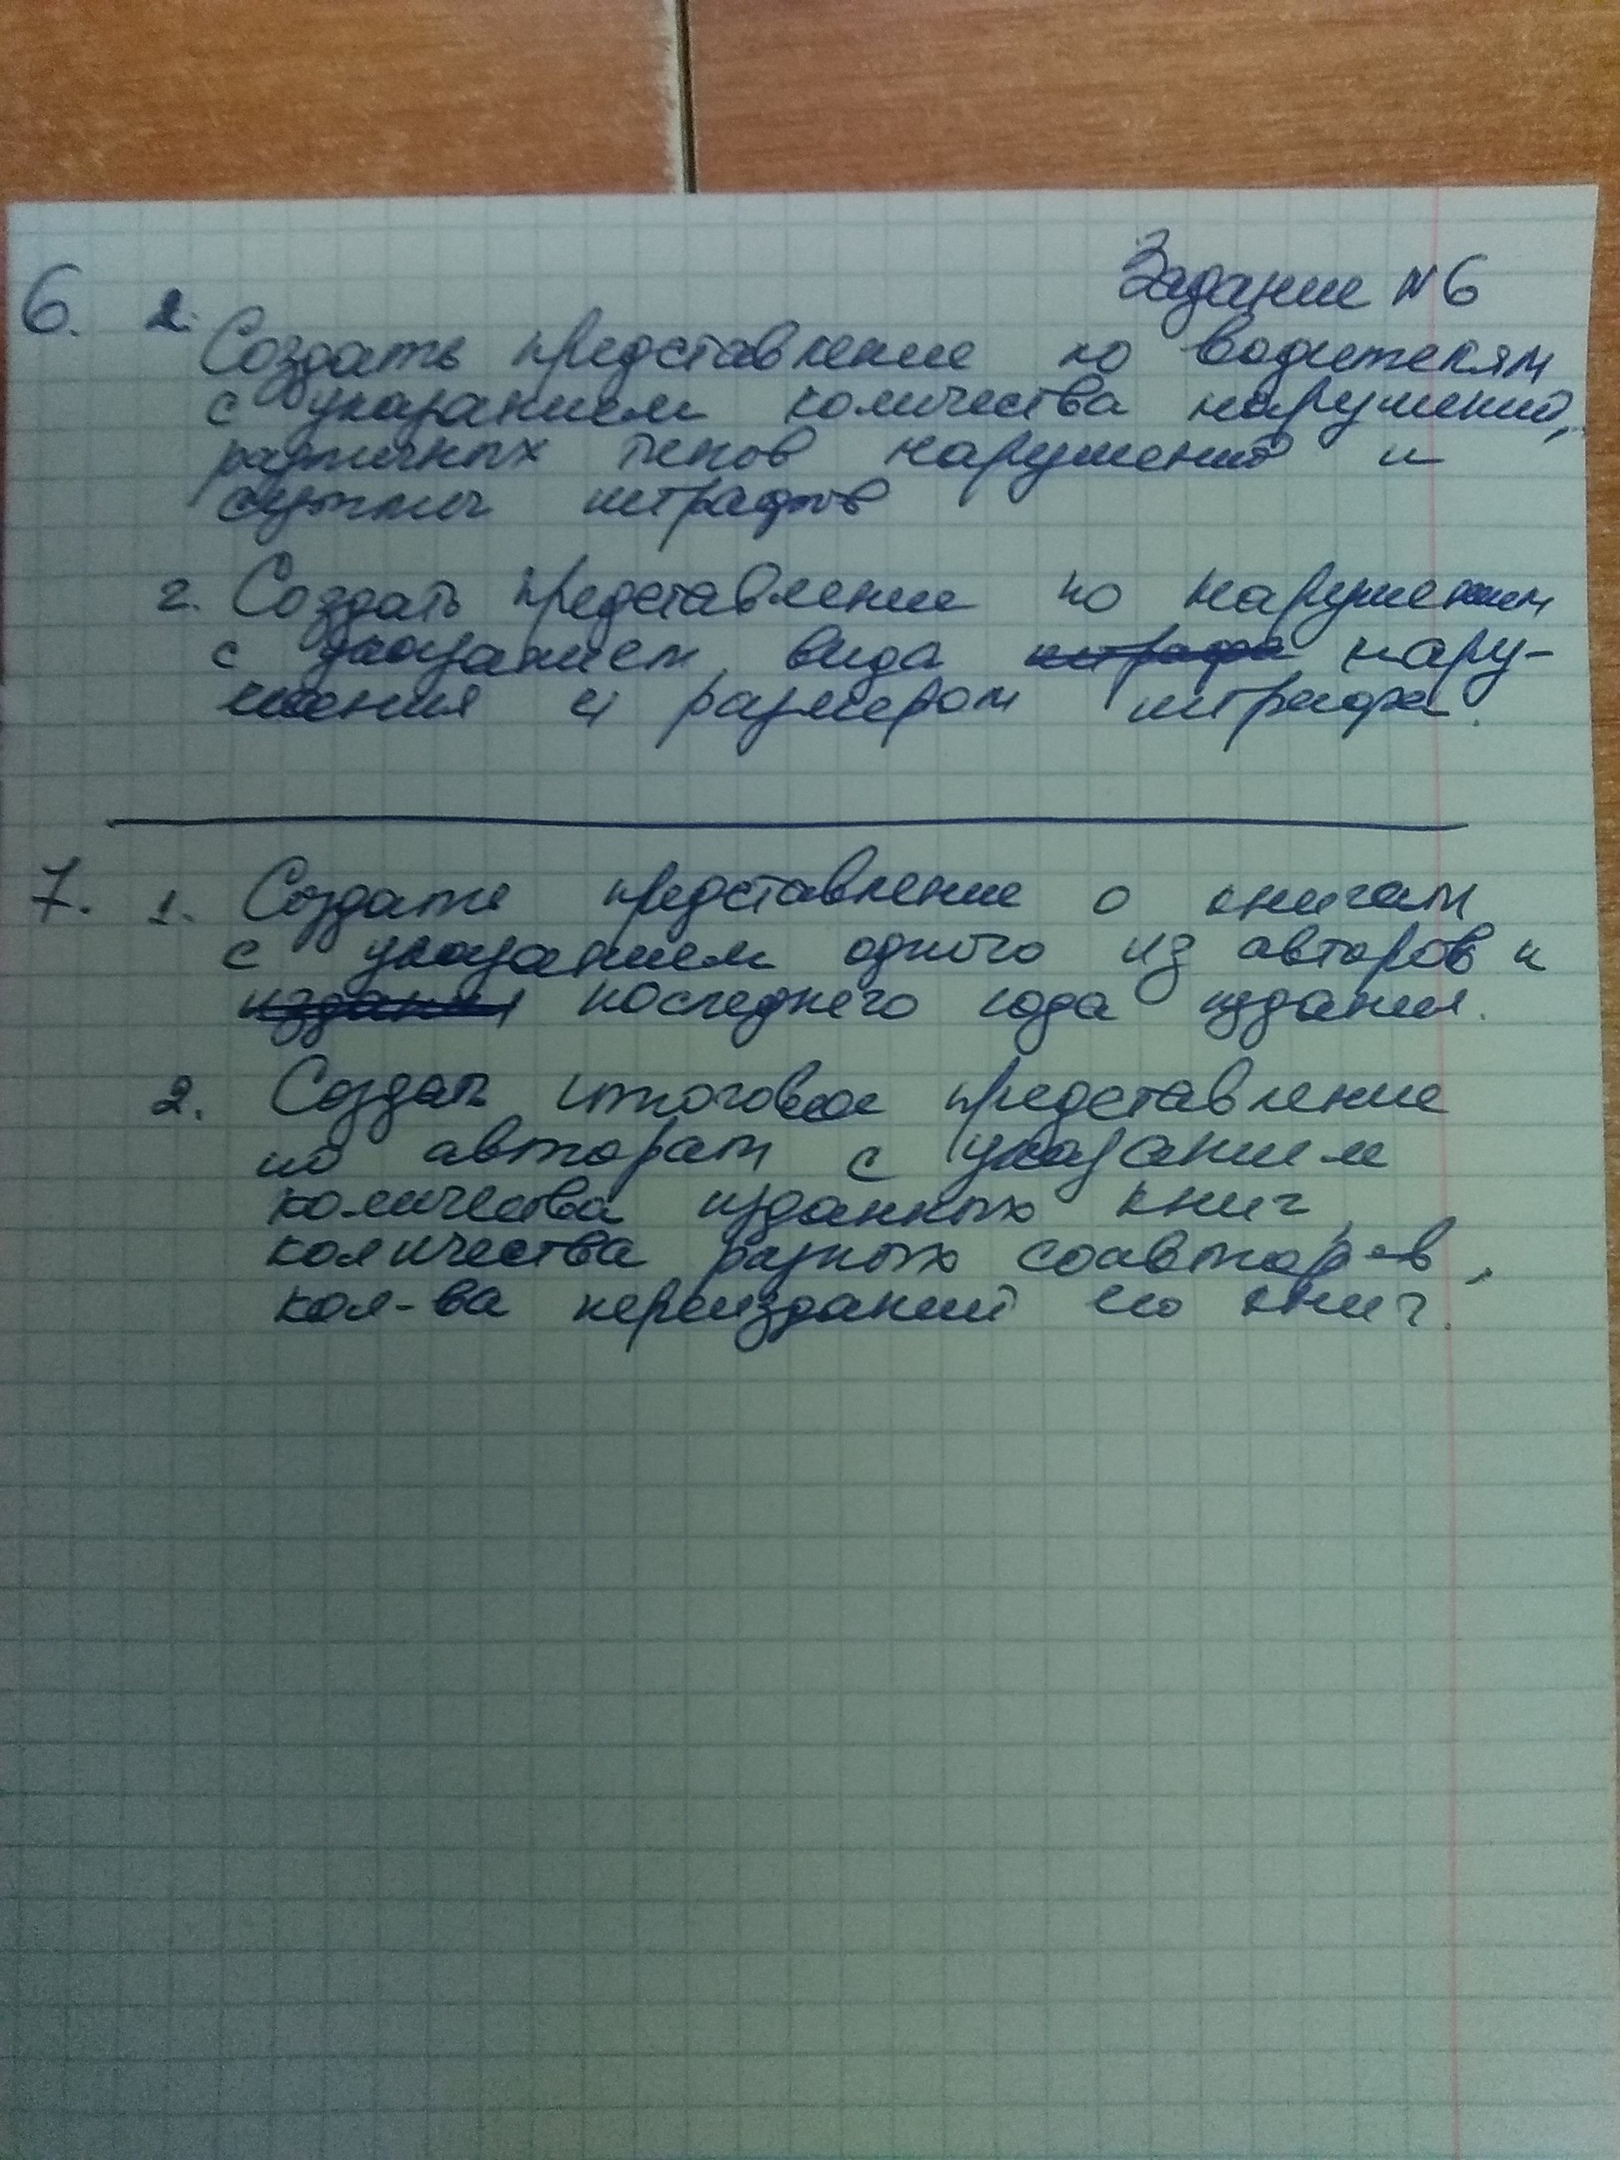 Задание №6
6. 2. Создать представление по водителям
с указанием количества нарушений,
различных типов нарушений и
суммы штрафов
2. Создать представление по нарушениям
с указанием вида нару-
шения и размером штрафа.
7. 1. Создать представление о книгам
с указанием одного из авторов и
последнего года издания.
2. Создать итоговое представление
по авторам с указанием
количества изданных книг,
количества разных соавторов,
кол-ва переизданий его книг.